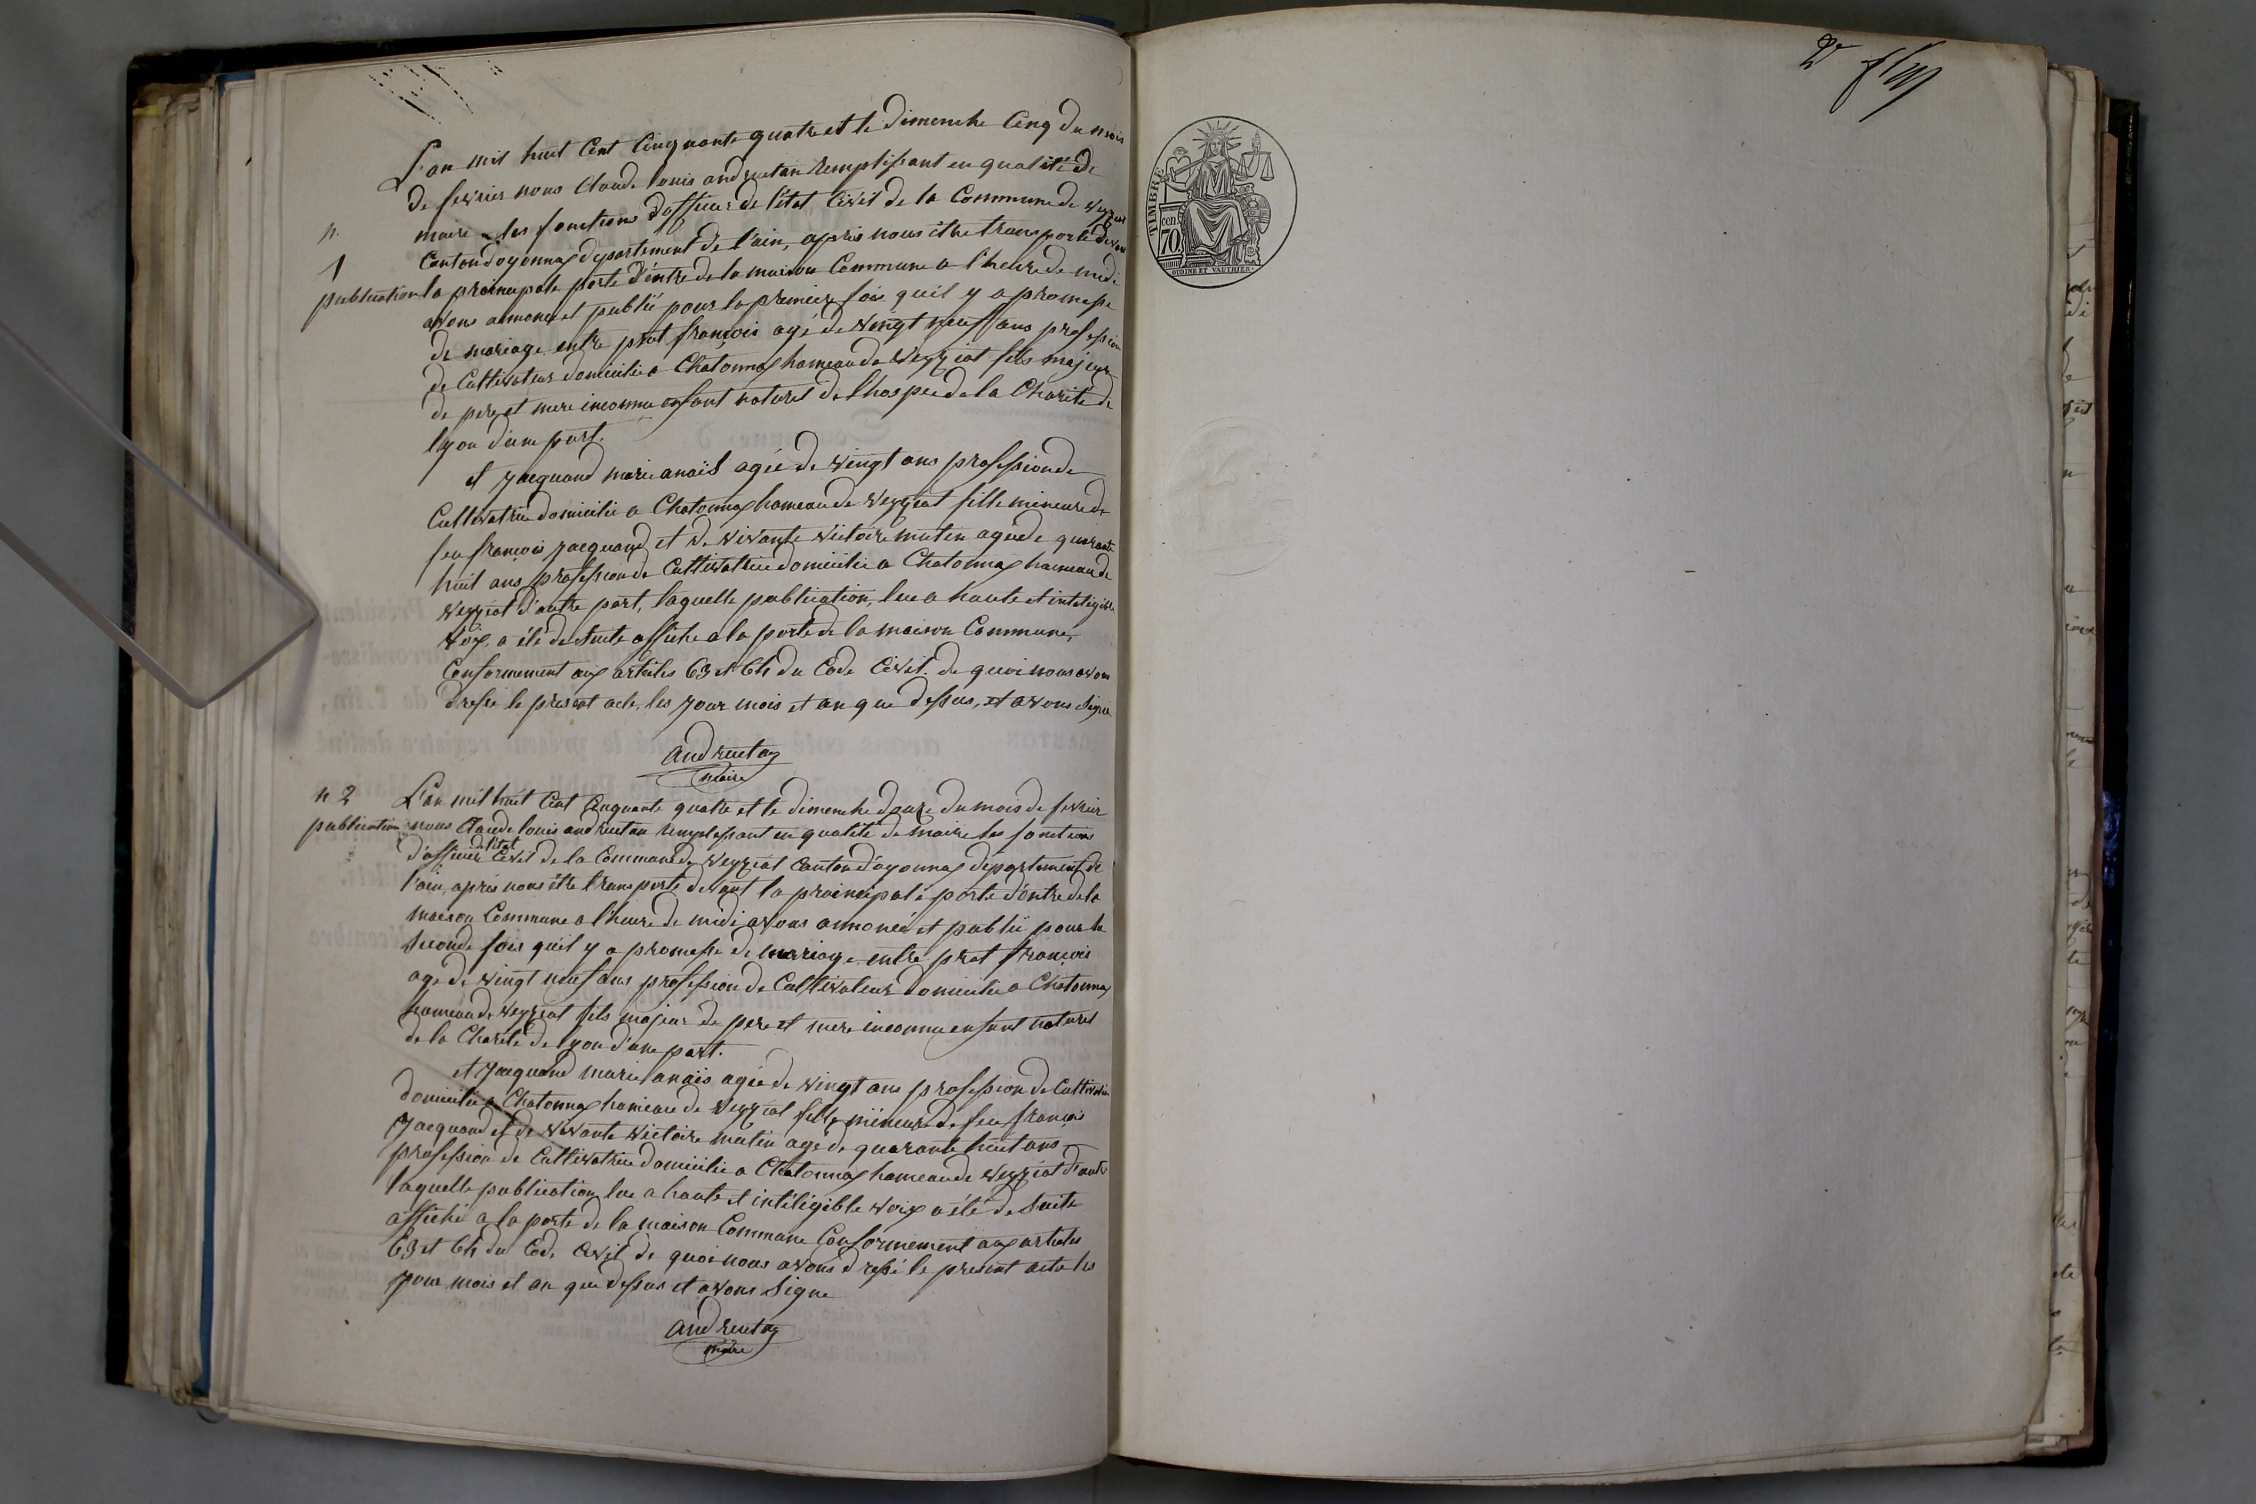 2e
L'an mil huit Cent Cinquante quatre et le dimenche Cinq du mois
de fevrier nous Claude louis andruetan remplissant en qualité de
maire les fonctions d'officier de l'état Civil de la Commune de veyziat
n.
1
publication
Canton doyonnax departement de l'ain, après nous être transporté devant
la prainicipale porte d'entre de la maison Commune a l'heure de midi
avons annoncé et publié pour la premiere fois qu'il y a promesse
de mariage entre prat françois agé de vingt neuf ans profession
de Cultivateur domicilié a Chatonnax hameau de veyziat fils majeur
de pere et mere inconnu enfant naturel de l'hospce de la Charité de
lyon d'une part.
et jacquand marie anaïs agée de vingt ans profession de
Cultivatrice domicilié a Chatonnax hameau de veyziat fille mineure de
feu françois jacquand et de vivante victoire mutin agée de quarante
huit ans profession de Cultivatrice domicilié a Chatonnax hameau de
veyziat d'autre part, laquelle publication, lue a haute et inteligible
voix, a été de suite affiché a la porte de la maison Commune,
Conformement aux articles 63 et 64 du Code Civil. de quoi nous avons
dressé le present acte, les jour mois et an que dessus, et avons signé
andruetan
maire
n 2
publication
L'an mil huit Cent Cinquante quatre et le dimenche douze du mois de fevrier
nous Claude louis andruetan remplissant en qualité de maire les fonctions
d'officier de l'état Civil de la Commune de veyziat Canton d'oyonnax département de
l'ain, après nous être transporté devant la prainicipale porte d'entre de la
maison Commune a l'heure de midi avons annoncé et publié pour la
seconde fois qu'il y a promesse de marriage entre prat françois
age de vingt neuf ans profession de Cultivateur domicilié a Chatonnax
hameau de veyziat fils majeur de pere et mere inconnu enfant naturel
de la Charité de lyon d'une part.
et jacquand marie anaïs agée de vingt ans profession de Cultivatrice
domicilié a Chatonnax hameau de veyziat fille mineure de feu françois
jacquand et de vivante victoire mutin age de quarante huit ans
profession de Cultivatrice domicilié a Chatonnax hameau de veyziat d'autre
laquelle publication lue a haute et inteligible voix a été de suite
affiché a la porte de la maison Commune Conformement aux articles
63 et 64 du Code Civil de quoi nous avons dressé le present acte les
jour mois et an que dessus et avons signe
andruetan
maire
TIMBRE
cen.
70
OUDINE ET VAUTHIER